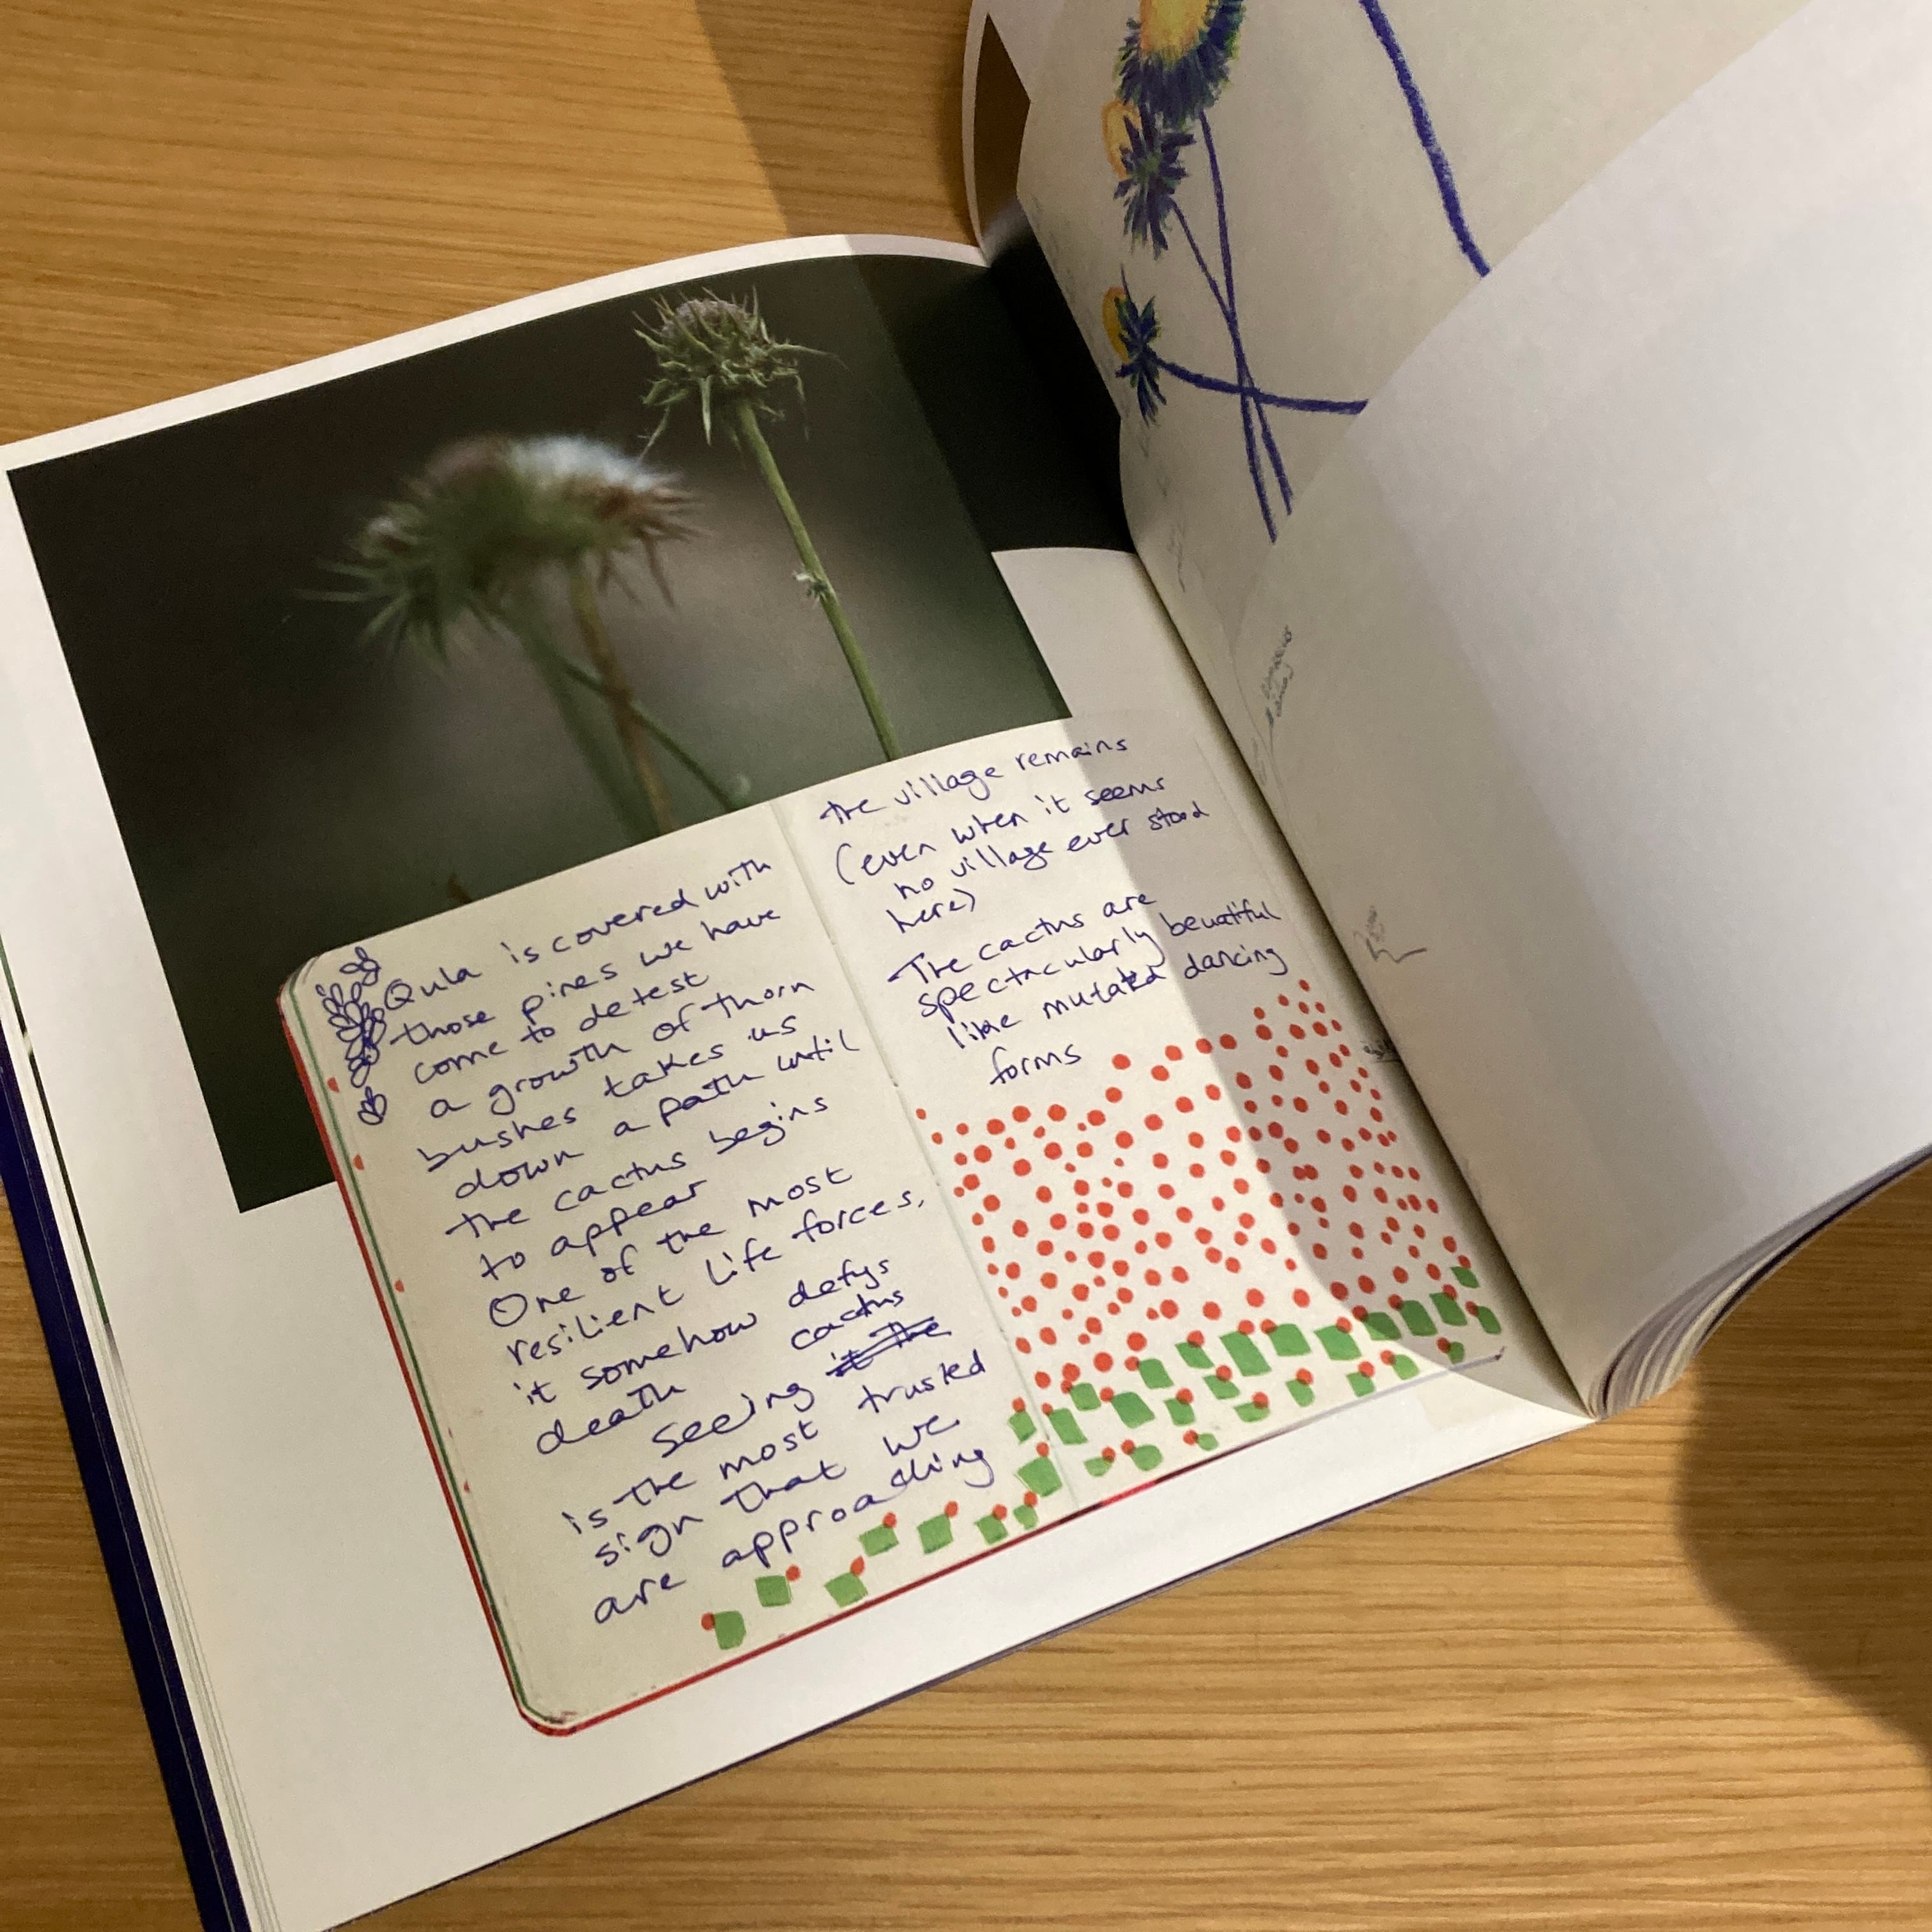 Qula is covered with
those pines we have
come to detest
a growth of thorn
bushes takes us
down a path until
the cactus begins
to appear
One of the most
resilient life forces,
it somehow defys
death
Seeing cactus it the
is the most trusted
sign that we
are approaching
the village remains
(even when it seems
no village ever stood
here)
The cactus are
spectacularly beuatiful
like mutated dancing
forms